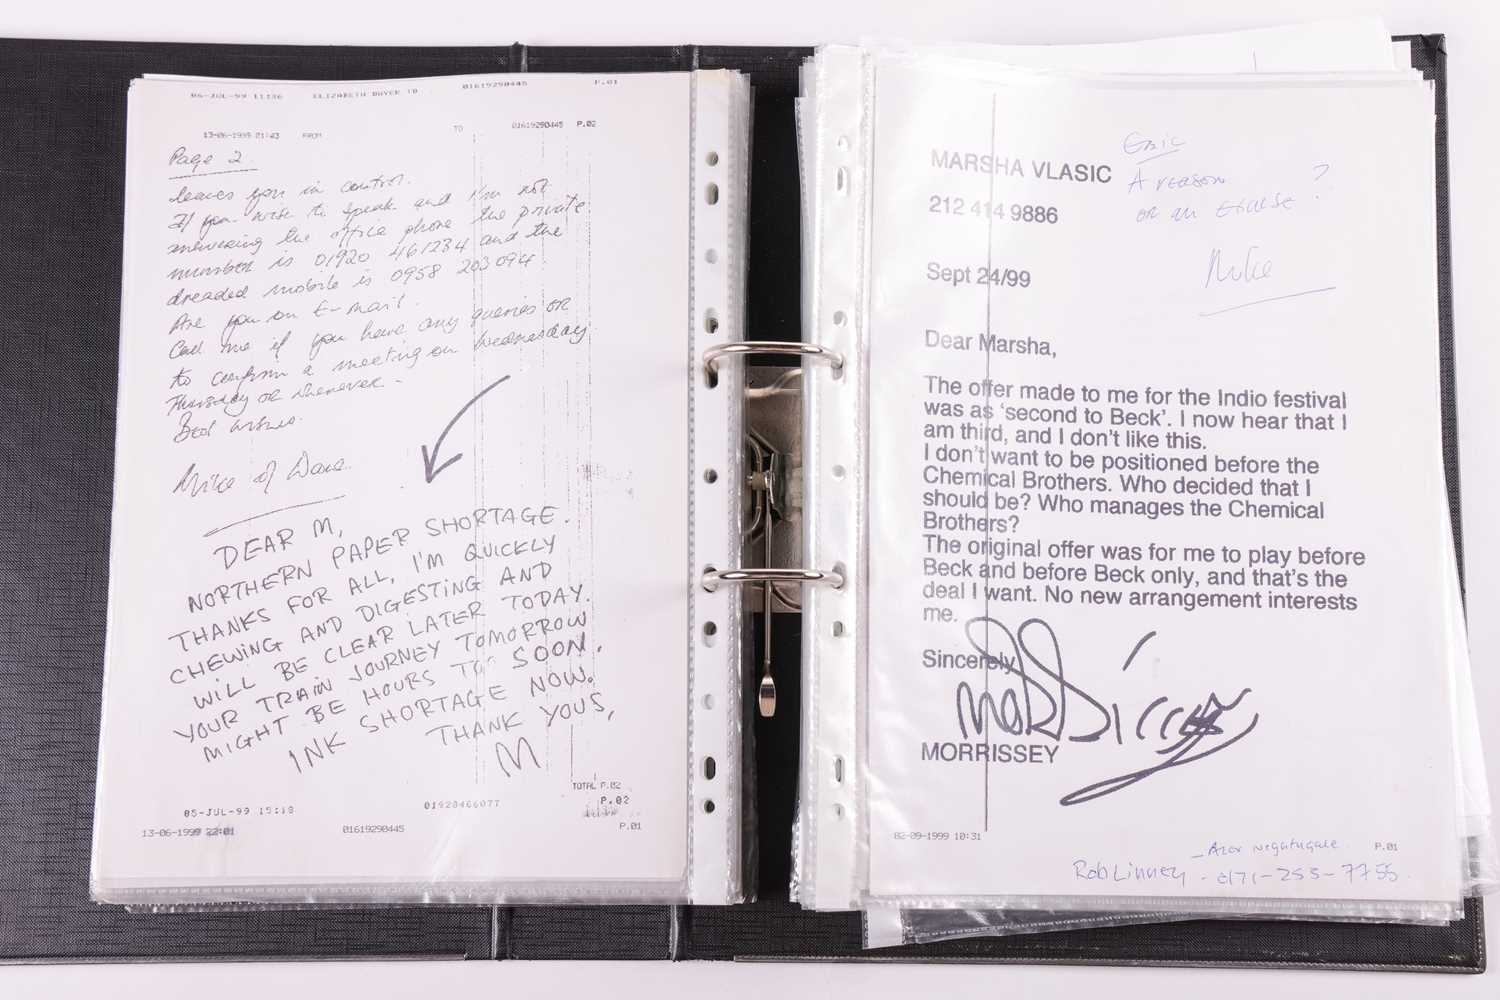 06-JUL-99 11:36 ELIZABETH DWYER TD 01619290445 P.01
13-06-1999 21:43 FROM TO 01619290445 P.02
Page 2.
leaves you in control.
If you wish to speak and I'm not
answering the office phone the private
number is 01920 461234 and the
dreaded mobile is 0958 203094.
Are you on E-mail.
Call me if you have any queries or
to confirm a meeting on Wednesday
Thursday or whenever.
Best wishes.
Mike
DEAR M,
NORTHERN PAPER SHORTAGE.
THANKS FOR ALL, I'M QUICKLY
CHEWING AND DIGESTING AND
WILL BE CLEAR LATER TODAY.
YOUR TRAIN JOURNEY TOMORROW
MIGHT BE HOURS TOO SOON.
INK SHORTAGE NOW.
THANK YOUS,
M
TOTAL P.02
P.02
05-JUL-99 15:18 01920466077
13-06-1999 22:01 01619290445 P.01
MARSHA VLASIC
212 414 9886
Eric
A reason
or an excuse ?
Mike
Sept 24/99
Dear Marsha,
The offer made to me for the Indio festival
was as 'second to Beck'. I now hear that I
am third, and I don't like this.
I don't want to be positioned before the
Chemical Brothers. Who decided that I
should be? Who manages the Chemical
Brothers?
The original offer was for me to play before
Beck and before Beck only, and that's the
deal I want. No new arrangement interests
me.
Sincerely
Morrissey
MORRISSEY
02-09-1999 10:31 P.01
Rob Linney - 0171-255-7755